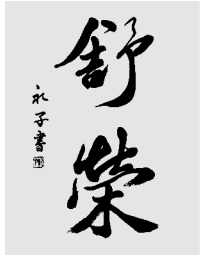 舒榮
永子書